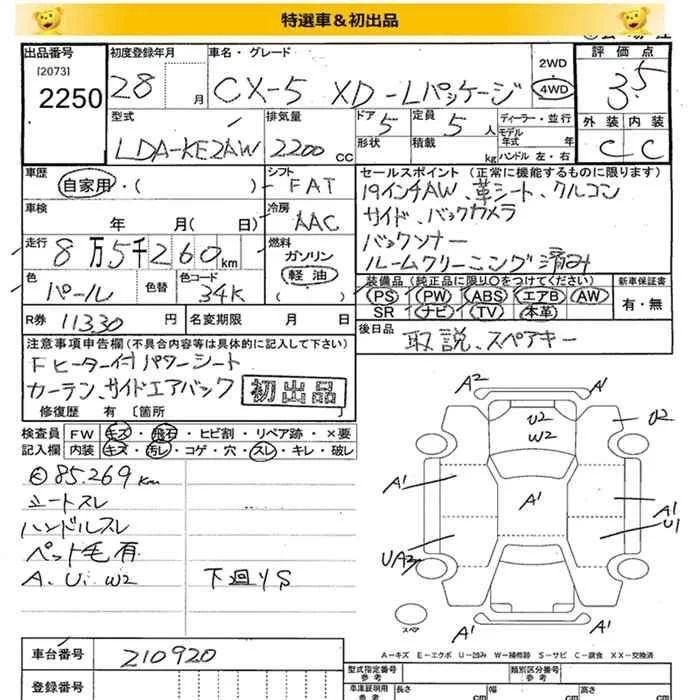 特選車&初出品
出品番号
[2073]
2250
初度登録年月
28 月
車名・グレード
CX-5 XD-Lパッケージ
2WD
4WD
評価点
3.5
外装 内装
C C
型式
LDA-KE2AW
排気量
2200 cc
ドア 5
形状
定員 5 人
積載 kg
ディーラー・並行
モデル年式 年
ハンドル 左・右
車歴
自家用・( )
シフト
FAT
車検
年 月( 日)
冷房
AAC
走行
8万5千260km
燃料
ガソリン
軽油
( )
色
パール
色替
色コード
34K
R券 11330 円
名変期限 月 日
セールスポイント (正常に機能するものに限ります)
19インチAW、革シート、クルコン
サイド、バックカメラ
バックソナー
ルームクリーニング済み
装備品(純正品に限り○をつけてください)
PS PW ABS エアB AW
SR ナビ TV 本革
新車保証書
有・無
後日品
取説、スペアキー
注意事項申告欄(不具合内容等は具体的に記入して下さい)
Fヒーター付パワーシート
カーテン、サイドエアバック
初出品
修復歴 有 〔箇所 〕
検査員 FW キズ・飛石・ヒビ割・リペア跡・×要
記入欄 内装 キズ・汚レ・コゲ・穴・スレ・キレ・破レ
85.269Km
シートスレ
ハンドルスレ
ペット毛有
A、U、W2 下廻りS
A2
A1
U2
W2
U2
A1
A1
A1
U1
UA2
A1
A1
スペア
A-キズ E-エクボ U-凹み W-補修跡 S-サビ C-腐食 XX-交換済
車台番号 210920
登録番号
型式指定番号
参考
類別区分番号
参考
車庫証明用
参考
長さ cm
幅 cm
高さ cm